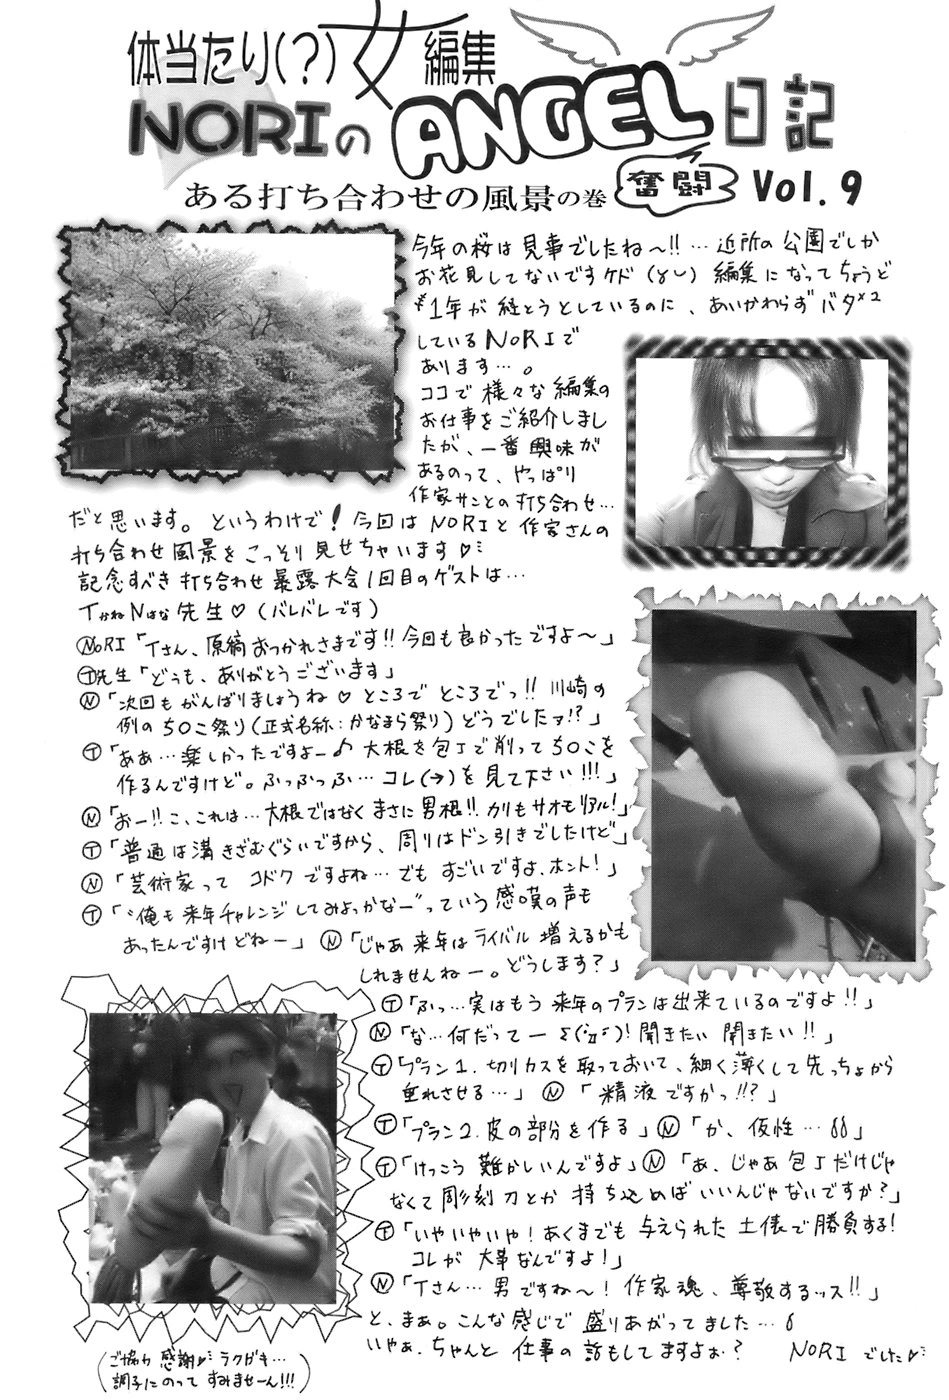 体当たり(?)女編集
NORIのANGEL日記
ある打ち合わせの風景の巻 奮闘 Vol.9
今年の桜は見事でしたね〜!!…近所の公園でしか
お花見してないですケド 編集になってちょうど
1年が経とうとしているのに、あいかわらずバタ×2
しているNORIで
あります…。
ココで様々な編集の
お仕事をご紹介しまし
たが、一番興味が
あるのって、やっぱり
作家サンとの打ち合わせ…
だと思います。というわけで!今回はNORIと作家さんの
打ち合わせ風景をこっそり見せちゃいます♡
記念すべき打ち合わせ暴露大会1回目のゲストは…
TかねNはな先生♡(バレバレです)
ⓃORI「Tさん、原稿おつかれさまです!!今回も良かったですよ〜」
Ⓣ先生「どうも、ありがとうございます」
Ⓝ「次回もがんばりましょうね♡ところでところでっ!!川崎の
例のち○こ祭り(正式名称:かなまら祭り)どうでしたァ!?」
Ⓣ「ああ…楽しかったですよー♪大根を包丁で削ってち○こを
作るんですけど。ふっふっふ…コレ(→)を見て下さい!!!」
Ⓝ「おー!!こ、これは…大根ではなくまさに男根!!カリもサオもリアル!」
Ⓣ「普通は溝きざむぐらいですから、周りはドン引きでしたけど」
Ⓝ「芸術家ってコドクですよね…でもすごいですよ、ホント!」
Ⓣ「“俺も来年チャレンジしてみよっかなー”っていう感嘆の声も
あったんですけどねー」Ⓝ「じゃあ来年はライバル増えるかも
しれませんねー。どうします?」
Ⓣ「ふっ…実はもう来年のプランは出来ているのですよ!!」
Ⓝ「な…何だってー Σ(ﾟДﾟ)!聞きたい聞きたい!!」
Ⓣ「プラン1.切りカスを取っておいて、細く薄くして先っちょから
垂れさせる…」Ⓝ「精液ですかっ!!?」
Ⓣ「プラン2.皮の部分を作る」Ⓝ「か、仮性…」
Ⓣ「けっこう難かしいんですよ」Ⓝ「あ、じゃあ包丁だけじゃ
なくて彫刻刀とか持ち込めばいいんじゃないですか?」
Ⓣ「いやいやいや!あくまでも与えられた土俵で勝負する!
コレが大事なんですよ!」
Ⓝ「Tさん…男ですね〜!作家魂、尊敬するッス!!」
と、まぁ。こんな感じで盛りあがってました…
いやぁ、ちゃんと仕事の話もしてますよぉ? NORIでした♡
(ご協力感謝♡ラクガキ…
調子にのってすみませーん!!!)